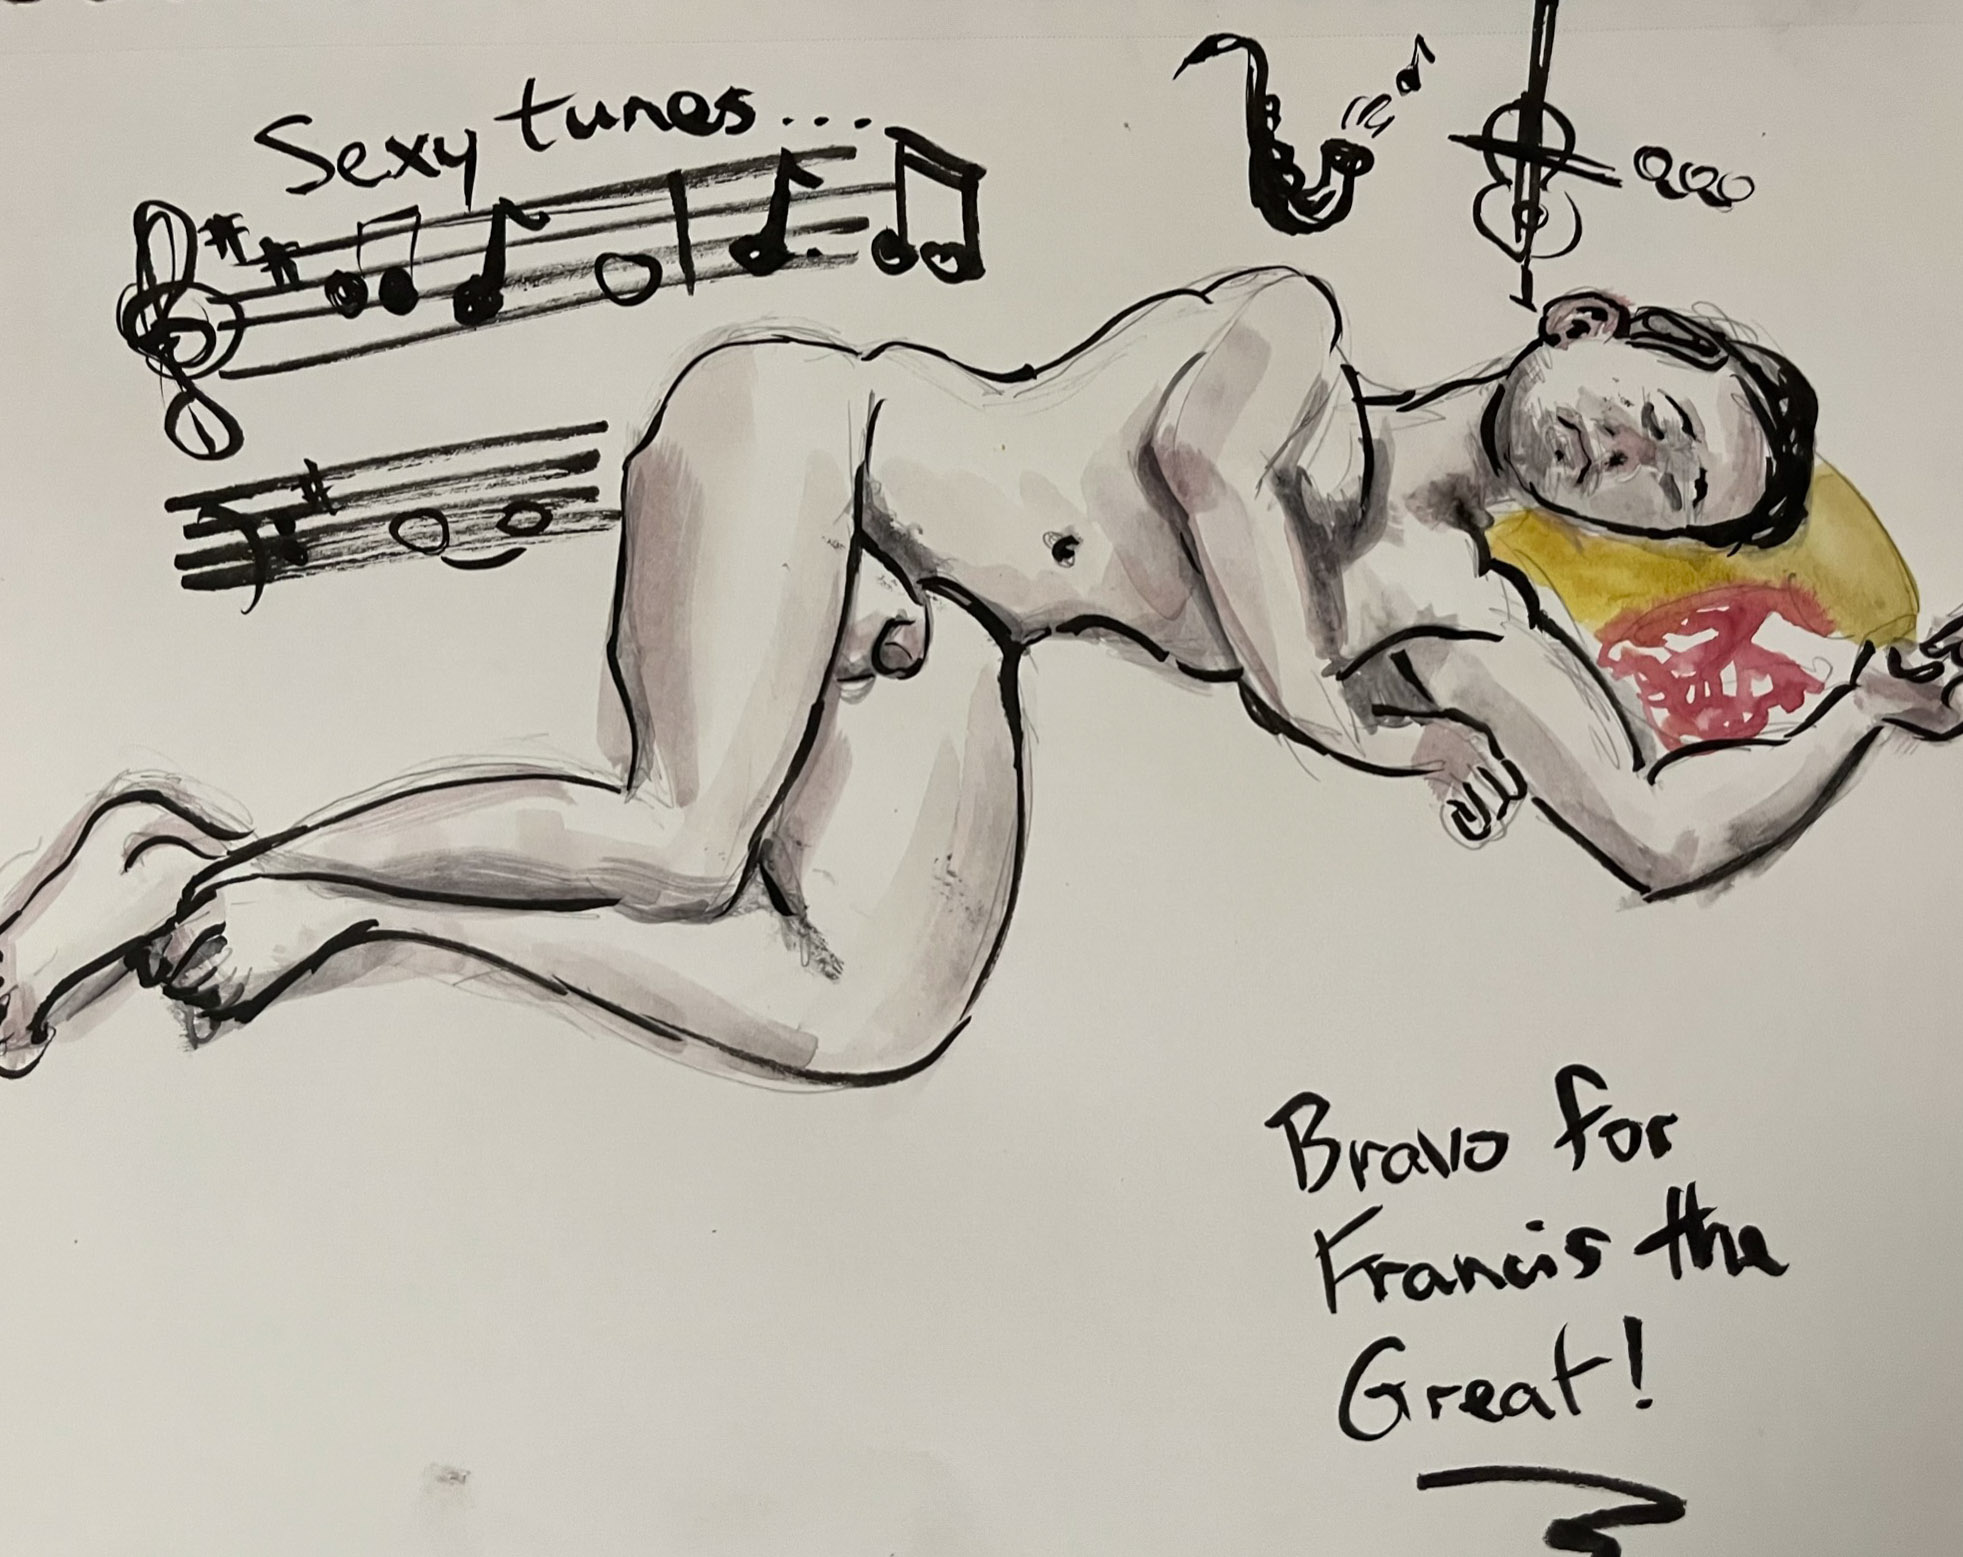 Sexy tunes...
Bravo for
Francis the
Great!